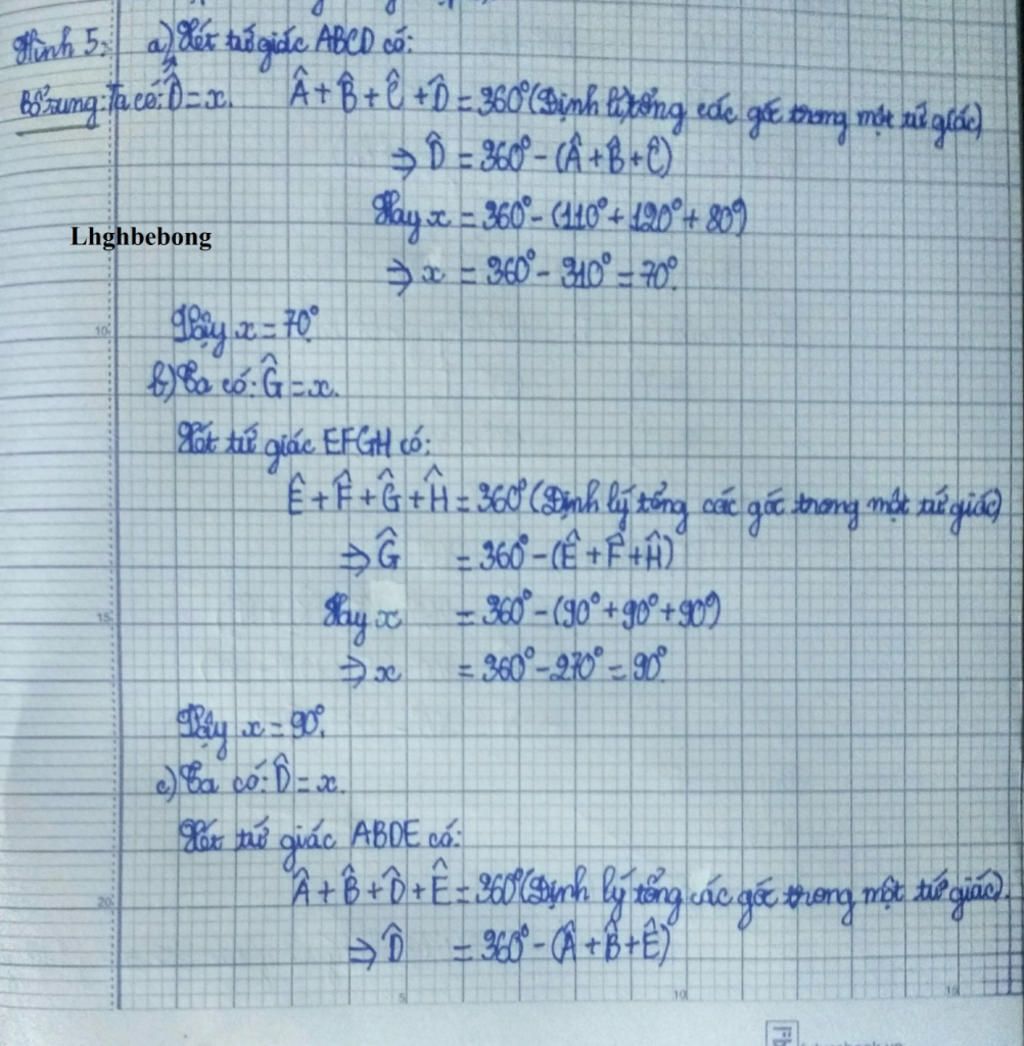 Hình 5: a) Xét tứ giác ABCD có:
Bổ sung: Ta có: D̂ = x. Â + B̂ + Ĉ + D̂ = 360° (Định lí tổng các góc trong một tứ giác)
⇒ D̂ = 360° - (Â + B̂ + Ĉ)
Hay x = 360° - (110° + 120° + 80°)
Lhghbebong
⇒ x = 360° - 310° = 70°.
Vậy x = 70°.
b) Ta có: Ĝ = x.
Xét tứ giác EFGH có:
Ê + F̂ + Ĝ + Ĥ = 360° (Định lý tổng các góc trong một tứ giác)
⇒ Ĝ = 360° - (Ê + F̂ + Ĥ)
Hay x = 360° - (90° + 90° + 90°)
⇒ x = 360° - 270° = 90°.
Vậy x = 90°.
c) Ta có: D̂ = x.
Xét tứ giác ABDE có:
Â + B̂ + D̂ + Ê = 360° (Định lý tổng các góc trong một tứ giác).
⇒ D̂ = 360° - (Â + B̂ + Ê)
10
15
20
5 10 15